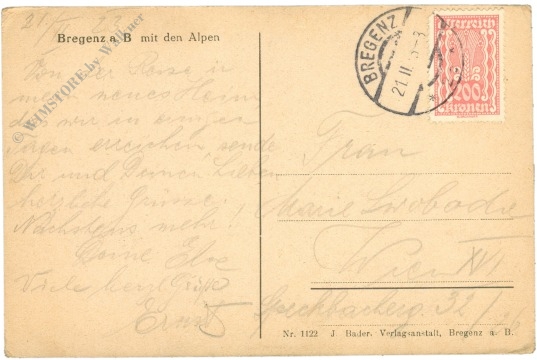 21. II. 23
Bregenz a. B. mit den Alpen
© WIMSTORE by W.
Von der Reise in
mein neues Heim
das wir in
Tagen erreichen, sende
Dir und Deinen Lieben
herzliche Grüsse.
Nächstens mehr!
Deine Else
Viele herzl. Grüße
Ernst
BREGENZ
21. II.
Österreich
200
Kronen
Frau
Marie Swoboda
Wien XVI
32/
Nr. 1122 J. Bader. Verlagsanstalt, Bregenz a. B.